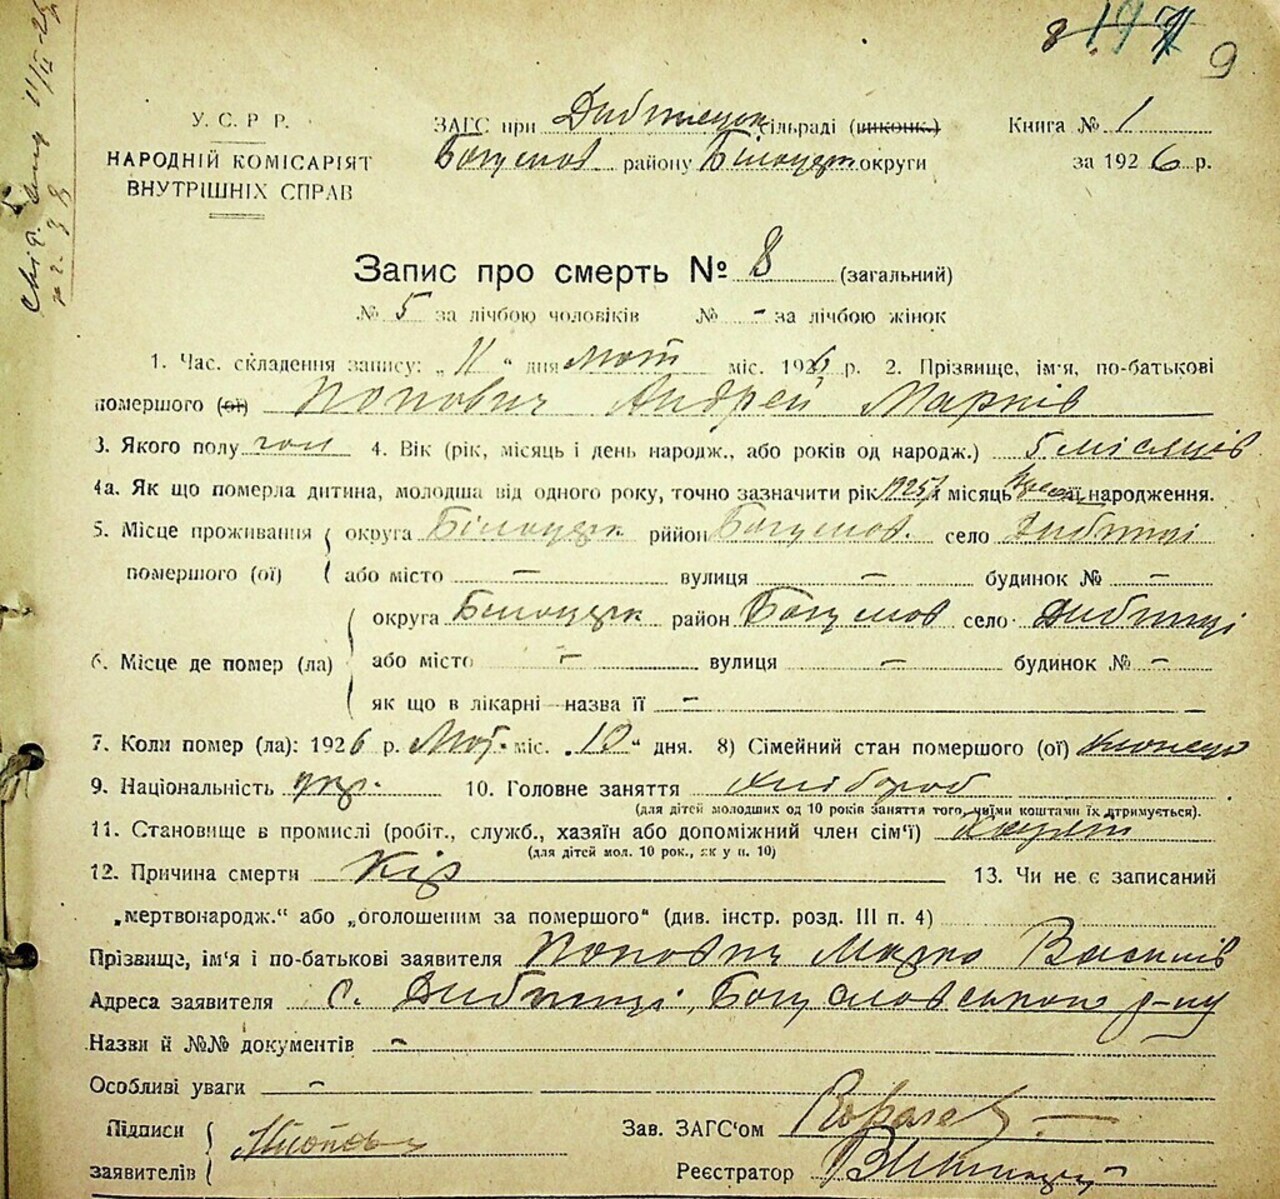 9
У. С. Р Р.
НАРОДНІЙ КОМІСАРІЯТ
ВНУТРІШНІХ СПРАВ
ЗАГС при Дибинецьк сільраді (виконк.)
Богуслов району Білоцерк округи
Книга № 1
за 1926 р.
Запис про смерть № 8 (загальний)
№ 5 за лічбою чоловіків № - за лічбою жінок
1. Час. складення запису: „11“ дня лют міс. 1926 р. 2. Прізвище, ім'я, по-батькові
помершого (ої) Попович Андрей Марків
3. Якого полу чол 4. Вік (рік, місяць і день народж., або років од народж.) 5 місяців
4а. Як що померла дитина, молодша від одного року, точно зазначити рік 1925 й місяць її народження.
5. Місце проживання округа Білоцерк рййон Богуслов. село Дибинці
помершого (ої) або місто — вулиця — будинок № —
округа Білоцерк район Богуслов село Дибинці
6. Місце де помер (ла) або місто — вулиця — будинок № —
як що в лікарні—назва її —
7. Коли помер (ла): 1926 р. Лют. міс. „10“ дня. 8) Сімейний стан помершого (ої) хлопець
9. Національність укр. 10. Головне заняття хлібороб
(для дітей молодших од 10 років заняття того, чиїми коштами їх утримується).
11. Становище в промислі (робіт., служб., хазяїн або допоміжний член сім'ї) Хазяїн
(для дітей мол. 10 рок., як у п. 10)
12. Причина смерти Кір 13. Чи не є записаний
„мертвонародж.“ або „оголошеним за помершого“ (див. інстр. розд. III п. 4)
Прізвище, ім'я і по-батькові заявителя Попович Марко Василів
Адреса заявителя с. Дибинці Богуславського р-ну
Назви й №№ документів —
Особливі уваги —
Підписи
заявителів
Зав. ЗАГС'ом
Реєстратор